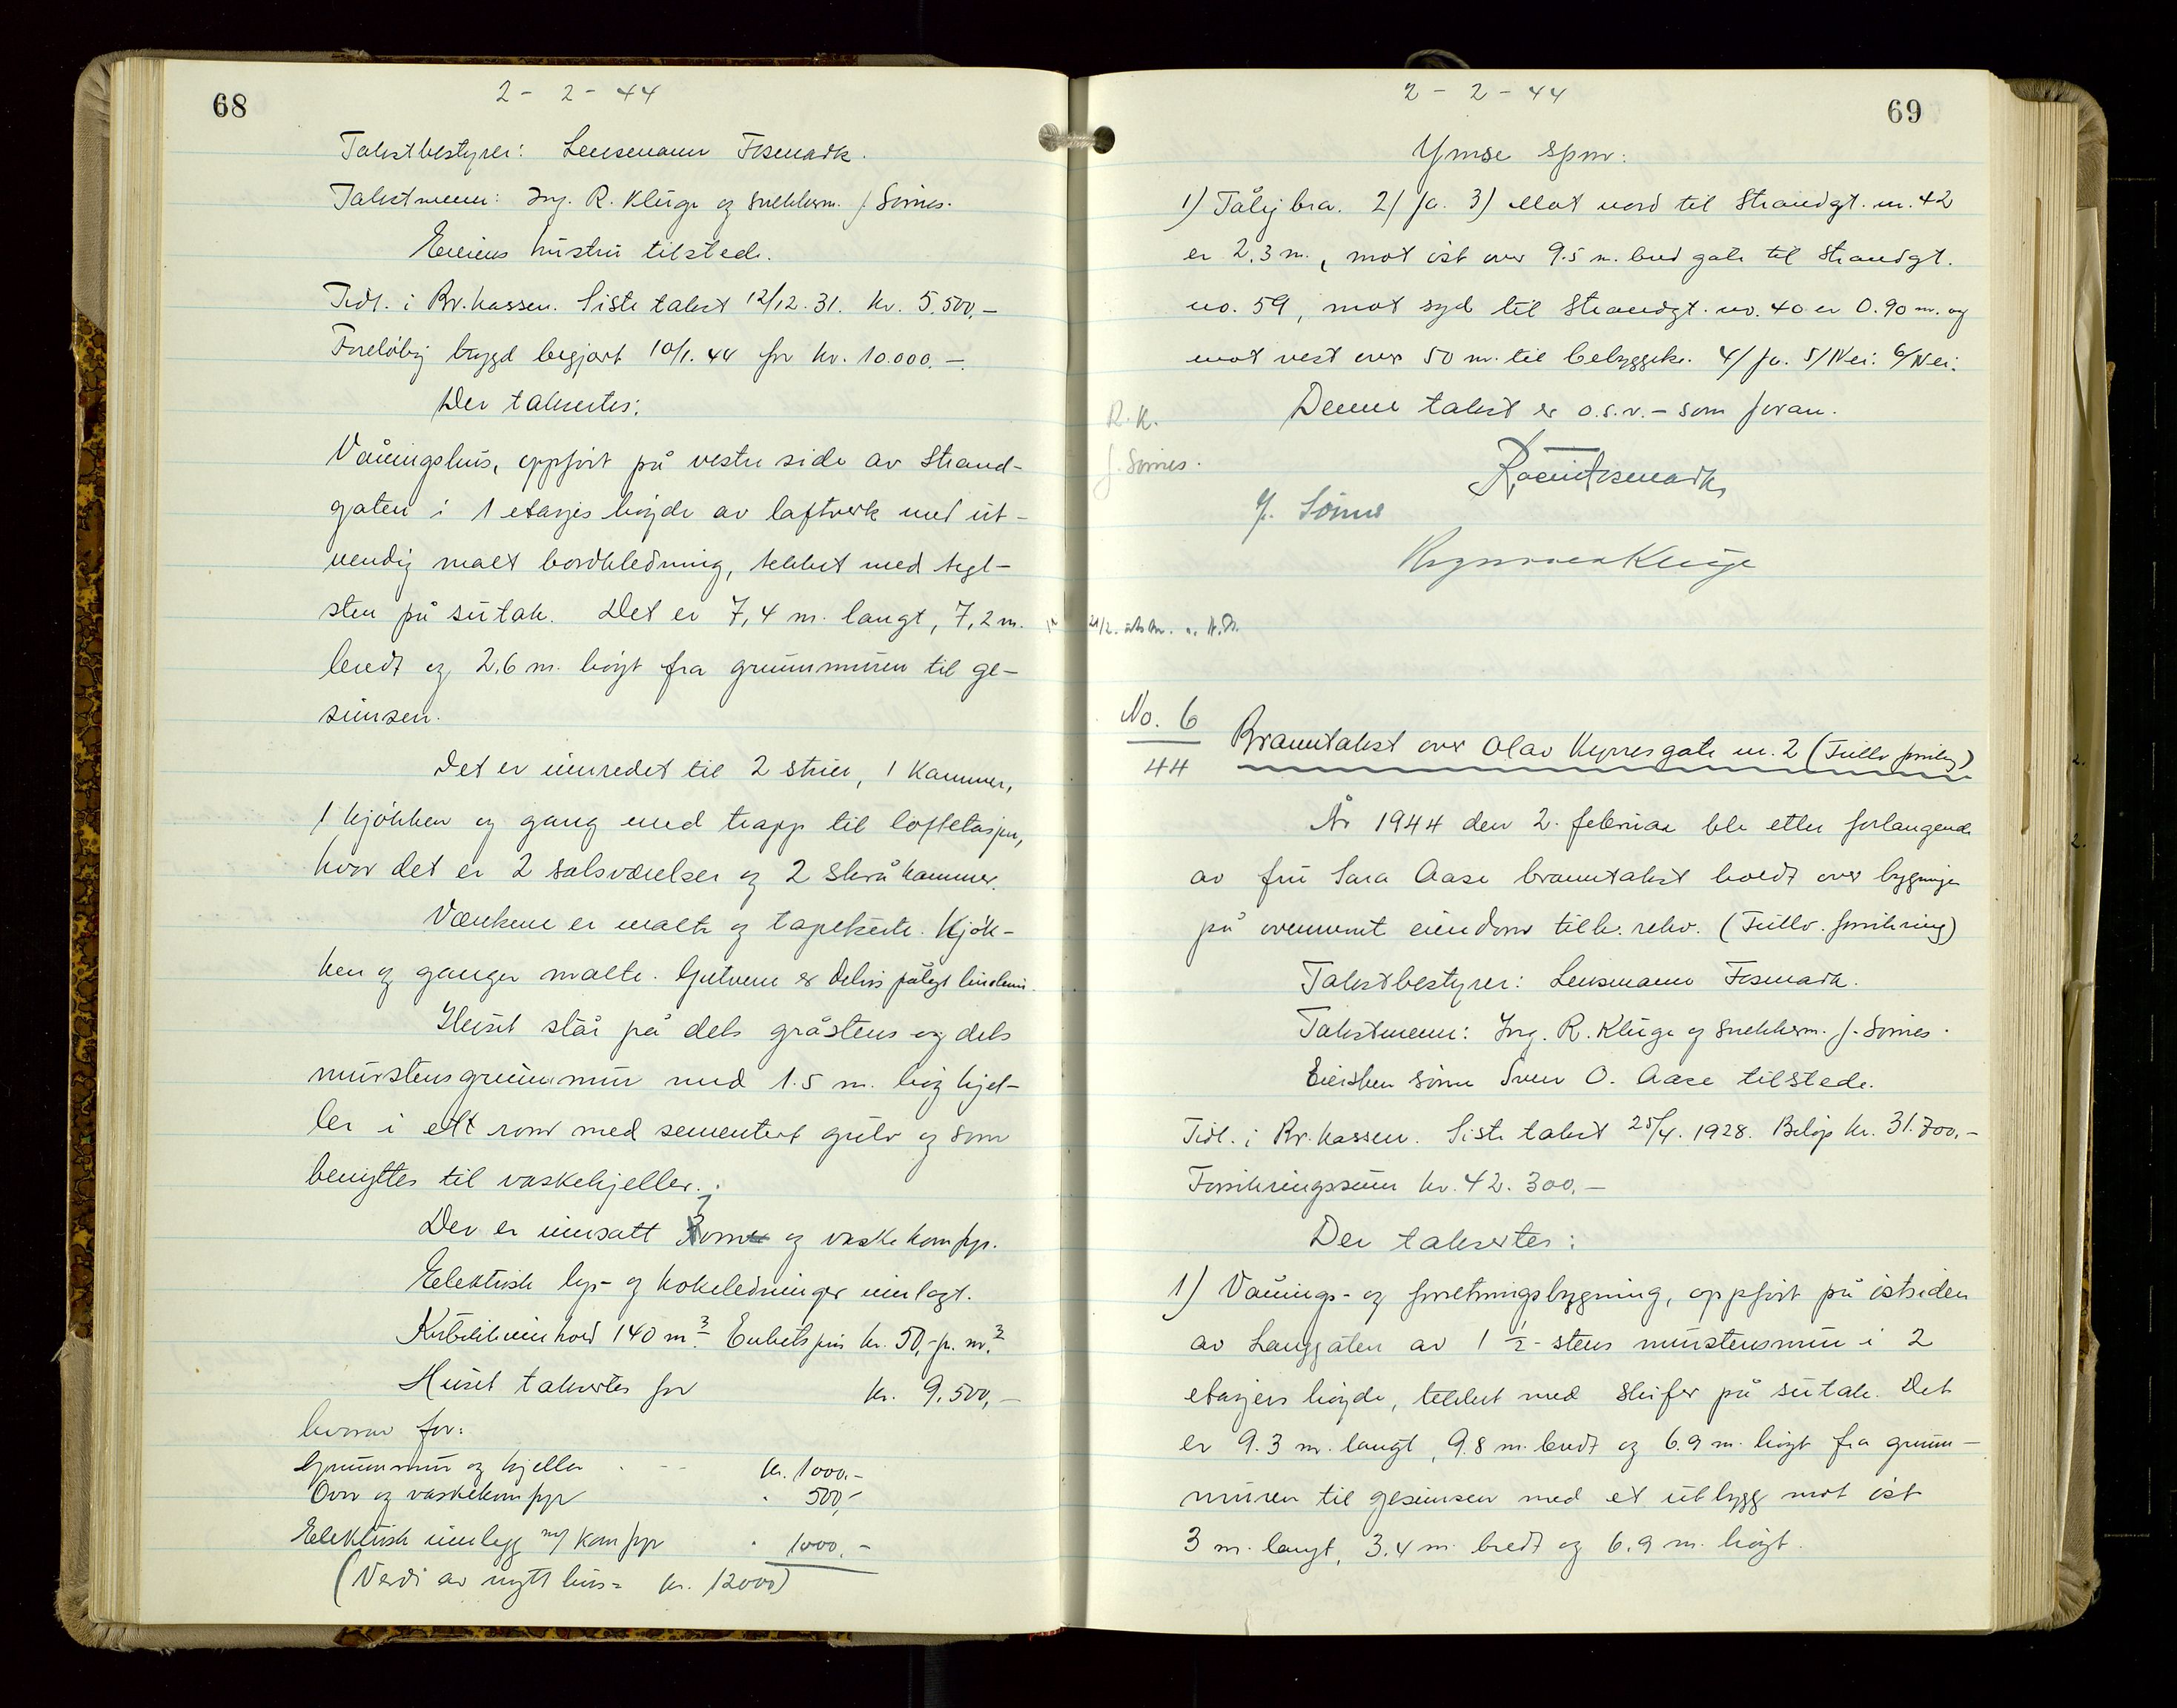 68
2 - 2 - 44
Takstbestyrer: Lensmann Fosmark.
Takstmenn: Ing. R. Kluge og snekkerm. J. Sømes.
Eierens hustru tilstede.
Tidl. i Br.kassen. Siste takst 12/12.31. kr. 5.500,-
Foreløbig trygd begjært 10/1.44 for kr. 10.000.-.
Der takseres:
Våningshus, oppført på vestre side av Strand-
gaten i 1 etasjes høyde av laftverk med ut-
vendig malt bordkledning, tekket med tegl-
sten på sutak. Det er 7,4 m. langt, 7,2 m.
bredt og 2.6 m. høyt fra grunnmuren til ge-
simsen.
Det er innredet til 2 stuer, 1 kammer,
1 kjøkken og gang med trapp til loftetasjen,
hvor det er 2 salsværelser og 2 skråkammer.
Værelsene er malte og tapetserte. Kjøk-
ken og ganger malte. Gulvene er delvis pålagt linoleum.
Huset står på dels gråstens og dels
murstensgrunnmur med 1.5 m. høg kjel-
ler i ett rom med sementert gulv og som
benyttes til vaskekjeller.
Der er innsatt og vaskekomfyr.
Elektrisk lys- og kokeledninger innlagt.
Kubikkinnhold 140 m³. Enhetspris kr. 50,- p. m.³
Huset takseres for kr. 9.500,-
hvorav for:
Grunnmur og kjeller . - - kr. 1000.-
Ovn og vaskekomfyr . 500,-
Elektrisk innlegg m/ komfyr . 1000.-
(Verdi av nytt hus = kr. 12000)
69
2 - 2 - 44
Ymse spm:
1) Tålig bra. 2) Ja. 3) Mot nord til Strandgt. nr. 42
er 2.3 m., mot øst over 9.5 m. bred gate til Strandgt.
no. 59, mot syd til Strandgt. no. 40 er 0.90 m. og
mot vest over 50 m. til bebyggelse. 4/ Ja. 5/ Nei. 6/ Nei.
R. K. Denne takst er o.s.v. - som foran.
J. Sømes.
J. Sømes
Kluge
21/2. utskr.
No. 6
44
Branntakst over Olav Kyrresgate nr. 2 (Fullv. forsikr.)
År 1944 den 2. februar ble etter forlangende
av fru Sara Aase branntakst holdt over bygninger
på ovennevnt eiendom tilh. rekv. (Fullv. forsikring)
Takstbestyrer: Lensmann Fosmark.
Takstmenn: Ing. R. Kluge og snekkerm. J. Sømes.
Eierskens sønn Sven O. Aase tilstede.
Tidl. i Br.kassen. Siste takst 25/4. 1928. Beløp kr. 31.700,-
Forsikringssum kr. 42.300,-
Der takseres:
1) Vånings- og forretningsbygning, oppført på østsiden
av Langgaten av 1 ½-stens murstensmur i 2
etasjers høyde, tekket med skifer på sutak. Det
er 9.3 m. langt, 9.8 m. bredt og 6.9 m. høyt fra grunn-
muren til gesimsen med et utbygg mot øst
3 m. langt, 3.4 m. bredt og 6.9 m. høyt.